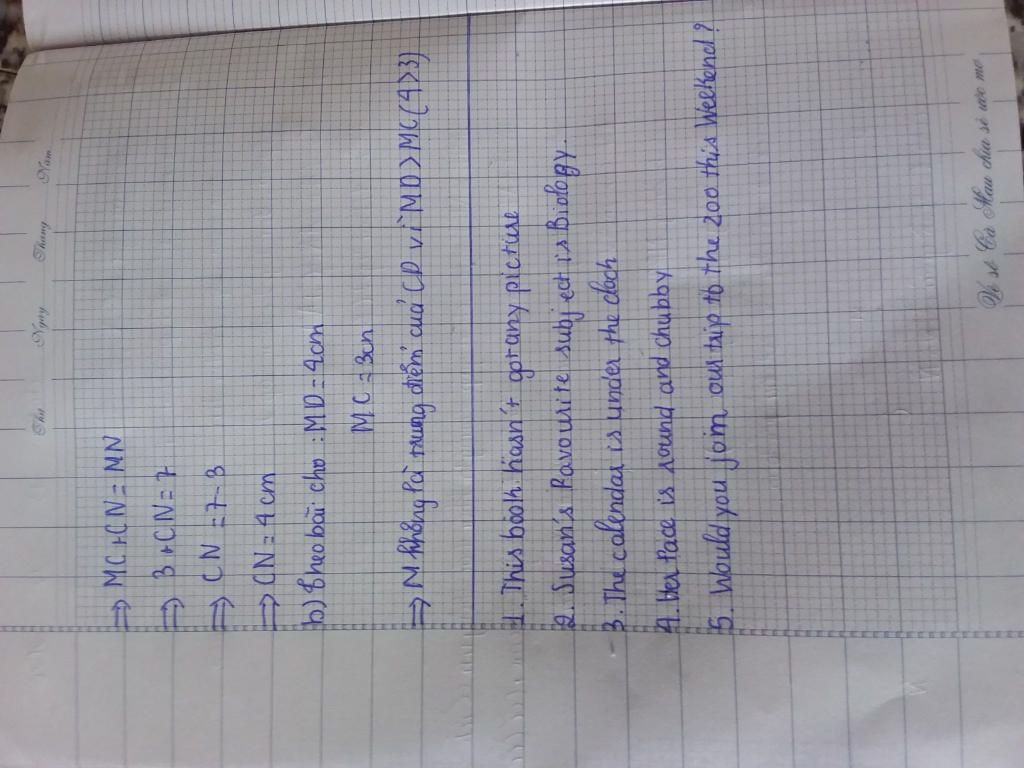 Thứ Ngày Tháng Năm
=> MC + CN = MN
=> 3 + CN = 7
=> CN = 7 - 3
=> CN = 4cm
b) Theo bài cho: MD = 4cm
MC = 3cm
=> M không là trung điểm của CD vì MD > MC (4>3)
1. This book hasn't got any picture
2. Susan's Favourite subject is Biology.
3. The calendar is under the clock
4. Her face is round and chubby
5. Would you join our trip to the zoo this Weekend?
Vở sê Cà Mau chia sẻ ước mơ